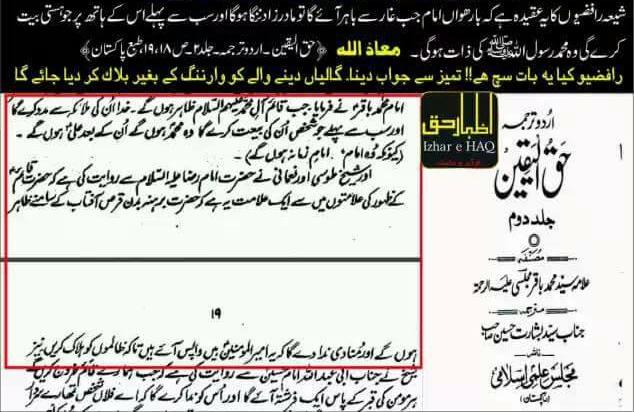 شیعہ رافضیوں کا یہ عقیدہ ہے کہ بارھواں امام جب غار سے باہر آئے گا تو مادر زاد ننگا ہوگا اور سب سے پہلے اس کے ہاتھ پر جو ہستی بیت
کرے گی وہ محمد رسول اللہ ﷺ کی ذات ہوگی۔ معاذ اللہ (حق الیقین۔ اردو ترجمہ۔ جلد ۲۔ ص ۱۸، ۱۹ طبع پاکستان)
رافضیو کیا یہ بات سچ ھے!! تمیز سے جواب دینا۔ گالیاں دینے والے کو وارننگ کے بغیر بلاک کر دیا جائے گا
امام محمد باقرؑ نے فرمایا جب قائم آل محمد علیہم السلام ظاہر ہوں گے۔ خدا اُن کی ملائکہ سے مدد کرے گا
اور سب سے پہلے جو شخص اُن کی بیعت کرے گا وہ محمدؐ ہوں گے اُن کے بعد علیؑ ہوں گے۔
(کیونکہ وُہ امام، امامِ زمانہ ہوں گے)۔
اور شیخ طوسی اور نعمانی نے حضرت امام رضا علیہ السلام سے روایت کی ہے کہ حضرت قائمؑ
کے ظہور کی علامتوں میں سے ایک علامت یہ ہے کہ حضرت برہنہ بدن قرص آفتاب کے سامنے ظاہر
۱۹
ہوں گے اور مُنادی ندا دے گا کہ یہ امیر المومنینؑ ہیں واپس آئے ہیں تاکہ ظالموں کو ہلاک کریں نیز
شیخ نے جناب ابی عبد اللہ امام حسینؑ سے روایت کی ہے کہ جب ہمارے قائم خروج کریں گے
ہر مومن کی قبر کے پاس ایک فرشتہ آئے گا اور اُس کو ندا کرے گا کہ اے فلاں شخص تمہارے
اظہارِ حق
Izhar e HAQ
اُردو ترجمہ
حق الیقین
جلد دوم
مصنفہ
علامہ سیّد محمد باقر مجلسی علیہ الرحمۃ
مترجمہ
جناب سیّد بشارت حسین صاحب
ناشر
مجلس علمی اسلامی
(پاکستان)